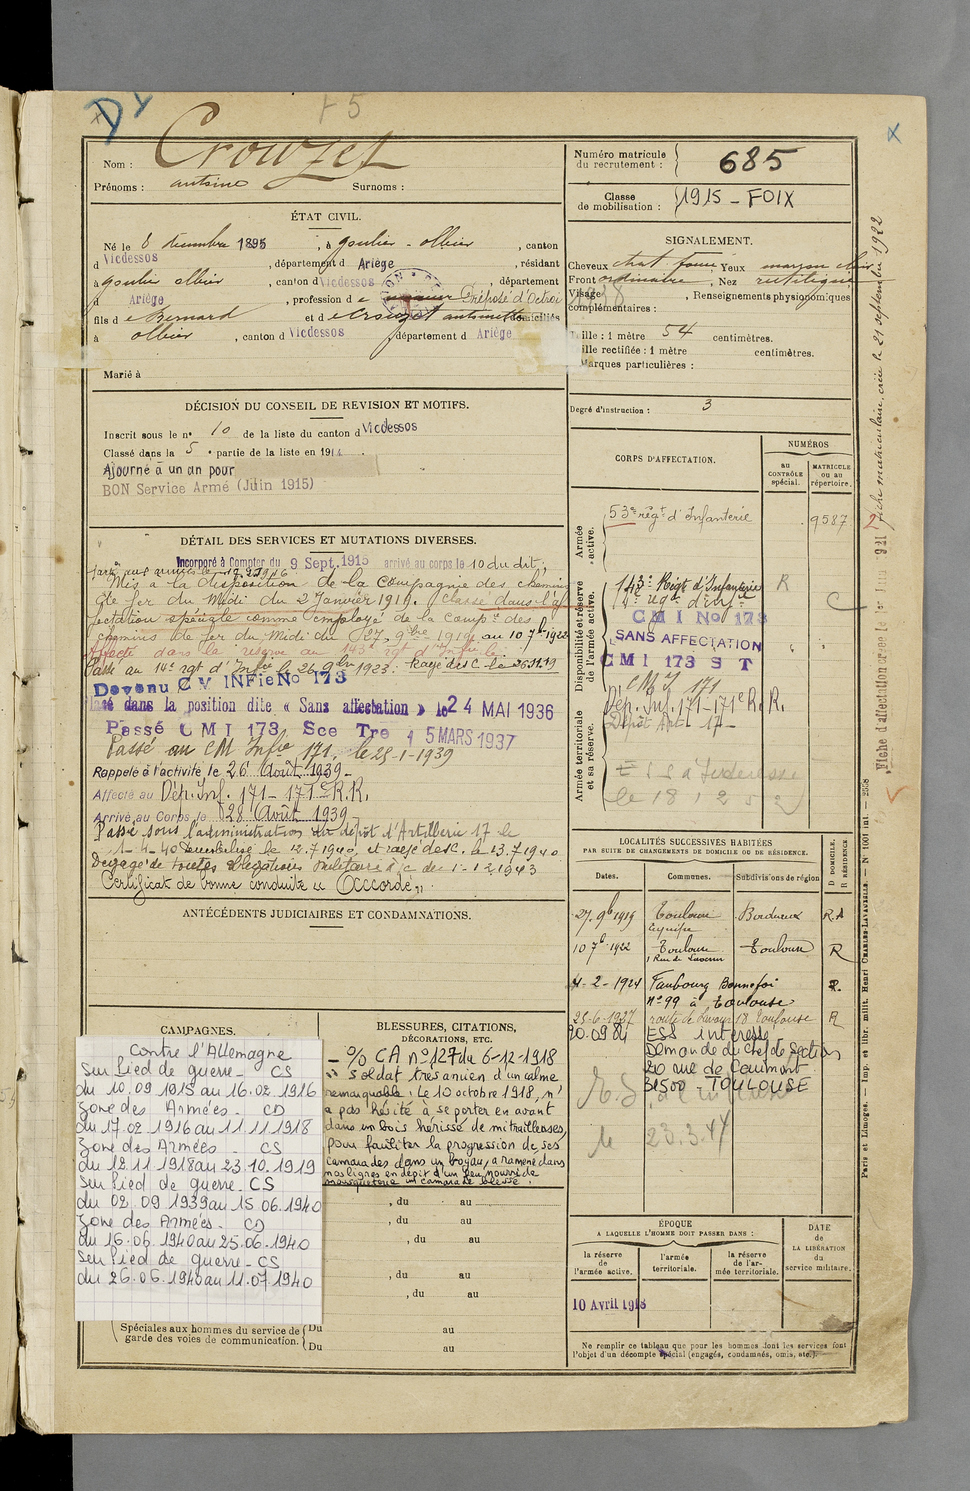 Dy
+5
Nom : Crouzet
Prénoms : antoine Surnoms :
Numéro matricule du recrutement : 685
Classe de mobilisation : 1915 - FOIX
ÉTAT CIVIL.
Né le 8 décembre 1895, à goulier - ollier, canton
d Vicdessos, département d Ariège, résidant
à goulier ollier, canton d Vicdessos, département
d Ariège, profession de Préposé d'Octroi
fils de Bernard et de Crouzet antoinette domiciliés
à ollier, canton d Vicdessos, département d Ariège
Marié à
SIGNALEMENT.
Cheveux chat. foncé, Yeux marron clair
Front ordinaire, Nez rectiligne
Visage, Renseignements physionomiques
complémentaires :
Taille : 1 mètre 54 centimètres.
Taille rectifiée : 1 mètre centimètres.
Marques particulières :
Degré d'instruction : 3
DÉCISION DU CONSEIL DE REVISION ET MOTIFS.
Inscrit sous le n° 10 de la liste du canton d Vicdessos
Classé dans la 5e partie de la liste en 1914.
Ajourné à un an pour
BON Service Armé (Juin 1915)
CORPS D'AFFECTATION.
NUMÉROS
au CONTRÔLE spécial.
MATRICULE ou au répertoire.
Armée active.
53e régt d'Infanterie 9587
Disponibilité et réserve de l'armée active.
143e Régt d'Infanterie R
14e regt d'inf
CMI No 173
SANS AFFECTATION
CMI 173 S T
CMI 171
Dép. Inf. 171-171e R.R.
Dépôt Art. 17-
Armée territoriale et sa réserve.
le 18 1 2 5 2
DÉTAIL DES SERVICES ET MUTATIONS DIVERSES.
Incorporé à Compter du 9 Sept. 1915 arrivé au corps le 10 du dit,
Mis à la disposition de la Compagnie des chemins
de fer du Midi du 2 Janvier 1919. Classé dans l'af
fectation spéciale comme employé de la Comp. des
chemins de fer du Midi du 27 9bre 1919 au 10 7b 1922
Affecté dans la réserve au 143e rgt d'Infie le
Passé au 14e rgt d'Infie le 26 9bre 1923.
Devenu CM INFie No 173
Placé dans la position dite « Sans affectation » le 24 MAI 1936
Passé CMI 173 Sce Tre 15 MARS 1937
Passé au CM Infie 171, le 25-1-1939
Rappelé à l'activité le 26 Août 1939-
Affecté au Dép. Inf. 171-171e R.R.
Arrivé au Corps le 28 Août 1939-
Passé sous l'administration du dépôt d'Artillerie 17 le
1-4-40 Démobilisé le 12.7.1940, et rayé des C. le 13.7.1940
Dégagé de toutes obligations militaires à c. de 1-12 1943
Certificat de bonne conduite « Accordé »
ANTÉCÉDENTS JUDICIAIRES ET CONDAMNATIONS.
LOCALITÉS SUCCESSIVES HABITÉES
PAR SUITE DE CHANGEMENTS DE DOMICILE OU DE RÉSIDENCE.
Dates. Communes. Subdivisions de région
D DOMICILE.
R RÉSIDENCE
27. 9b 1919 Toulouse Bordeaux R.
10 7b 1922 Toulouse Toulouse R
4-2-1924 Faubourg Bonnefoi R.
n° 99 à Toulouse
25-6-1927 Toulouse R
20.09 84 ESS interesse
Demande du chef de Section
20 rue de Caumont
31500 - TOULOUSE
le 23.3.47
CAMPAGNES.
Contre l'Allemagne
Sur Pied de guerre - CS
du 10.09 1915 au 16.02 1916
Zone des Armées - CD
du 17.02 1916 au 11 11 1918
Zone des Armées - CS
du 12 11 1918 au 23.10.1919
Sur Pied de guerre - CS
du 02 09 1939 au 15 06.1940
Zone des Armées - CD
du 16.06 1940 au 25.06.1940
Sur Pied de guerre - CS
du 26.06.1940 au 11.07.1940
Spéciales aux hommes du service de garde des voies de communication.
Du au
Du au
BLESSURES, CITATIONS,
DÉCORATIONS, ETC.
- O/O CA n° 127 du 6-12-1918
" Soldat très ancien d'un calme
remarquable ; Le 10 octobre 1918, n'
a pas hésité à se porter en avant
dans un bois hérissé de mitrailleuses,
pour faciliter la progression de ses
camarades dans un boyau, a ramené dans
nos lignes en dépit d'un feu nourri de
mousqueterie un camarade blessé.
, du au
, du au
, du au
, du au
, du au
ÉPOQUE
A LAQUELLE L'HOMME DOIT PASSER DANS :
la réserve de l'armée active.
l'armée territoriale.
la réserve de l'armée territoriale.
DATE DE LA LIBÉRATION du service militaire.
10 Avril 1918
Ne remplir ce tableau que pour les hommes dont les services font
l'objet d'un décompte spécial (engagés, condamnés, omis, etc.).
fiche matriculaire créée le 21 septembre 1922
Fiche d'affectation créée le 1er Juin 921
Paris et Limoges. — Imp. et libr. milit. Henri CHARLES-LAVAUZELLE. — N° 1001 int. — 2358